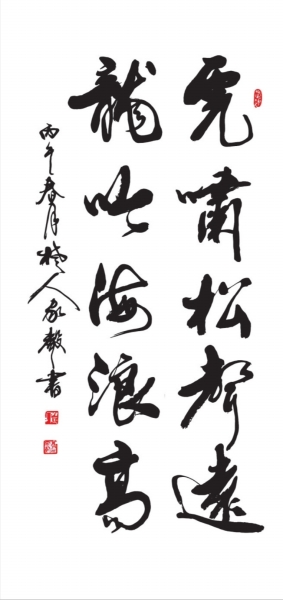 虎啸松聲遠
龍吟海浪高
丙午春月楚人家毅書